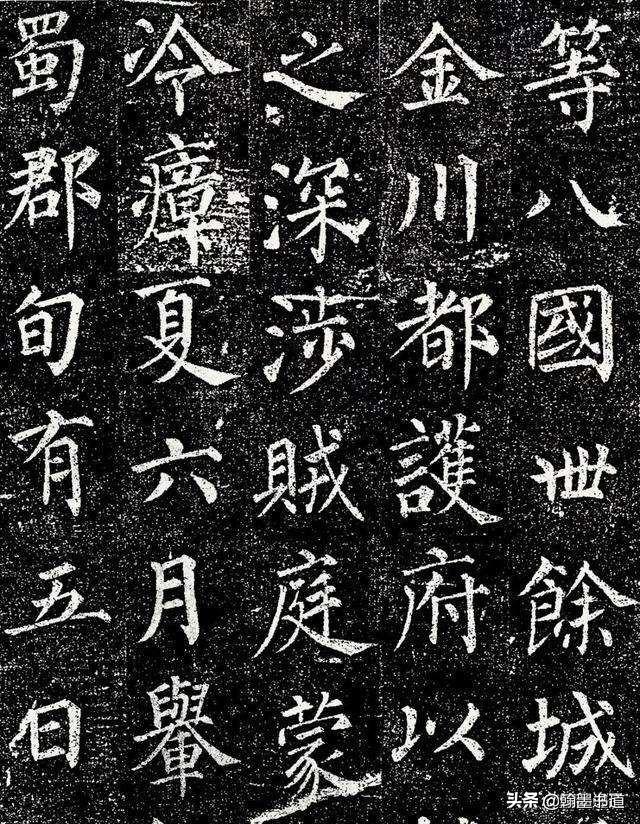 等八國丗餘城
金川都護府以
之深涉賊庭蒙
冷瘴夏六月轝
蜀郡旬有五日
头条 @翰墨书道